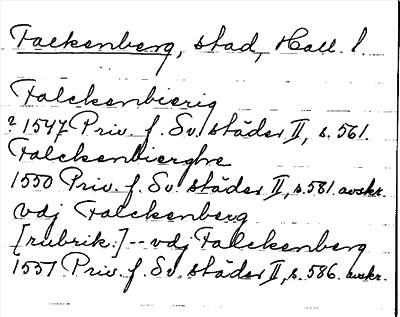 Falkenberg, stad, Hall. l.
Falckenbierig
? 1547 Priv. f. Sv. städer II, s. 561.
Falckenbierghe
1550 Priv. f. Sv. städer II, s. 581. avskr.
vdj Falckenberg
[rubrik:] -- vdj Falckenberg
1557 Priv. f. Sv. städer II, s. 586. avskr.